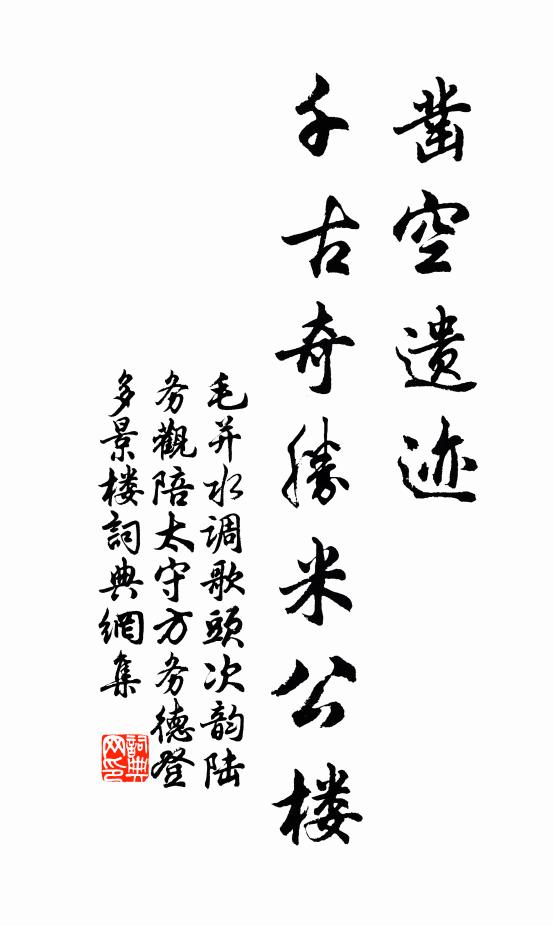 凿空遗迹
千古奇勝米公楼
毛并水调歌頭次韵陆
务觀陪太守方务德登
多景楼詞典網集
詞典网印